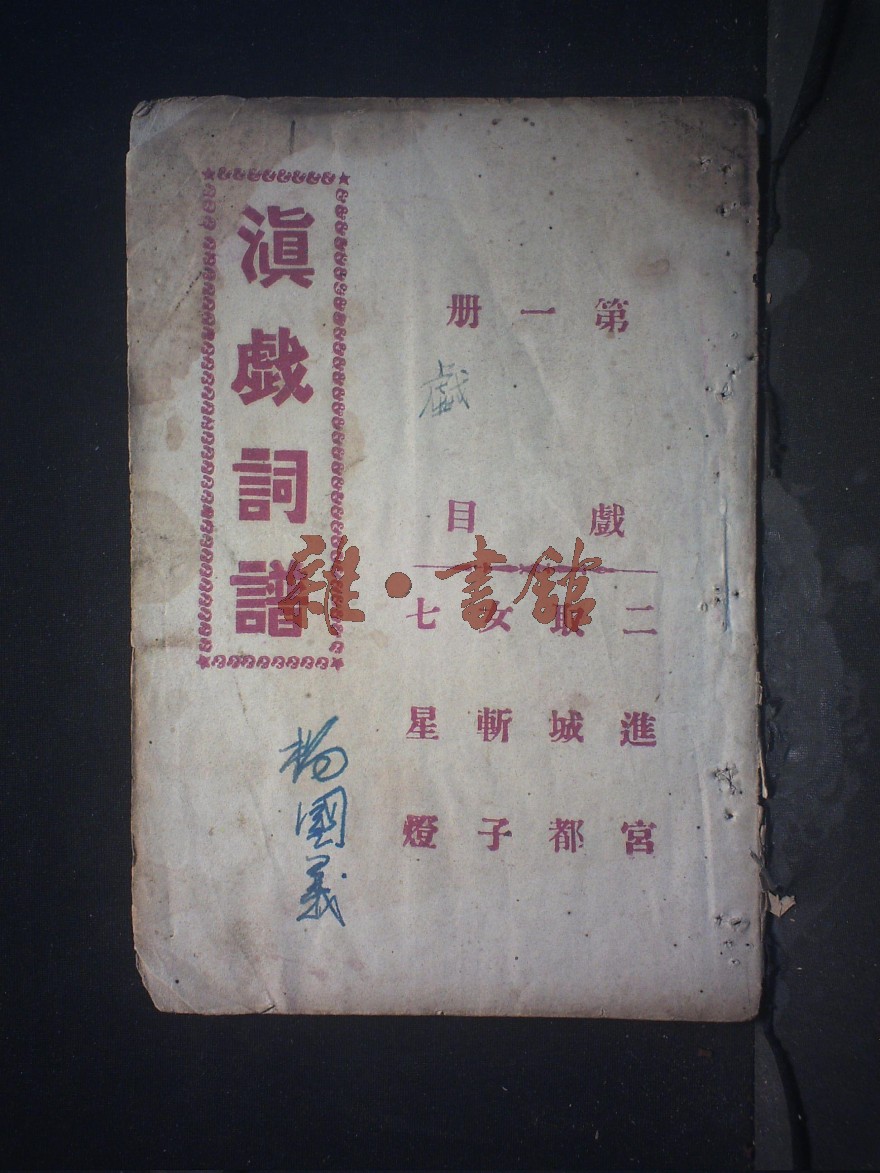 第一册
戯
戲目
二進宮
取城都
女斬子
七星燈
滇戯詞譜
杨國義
雜·書館